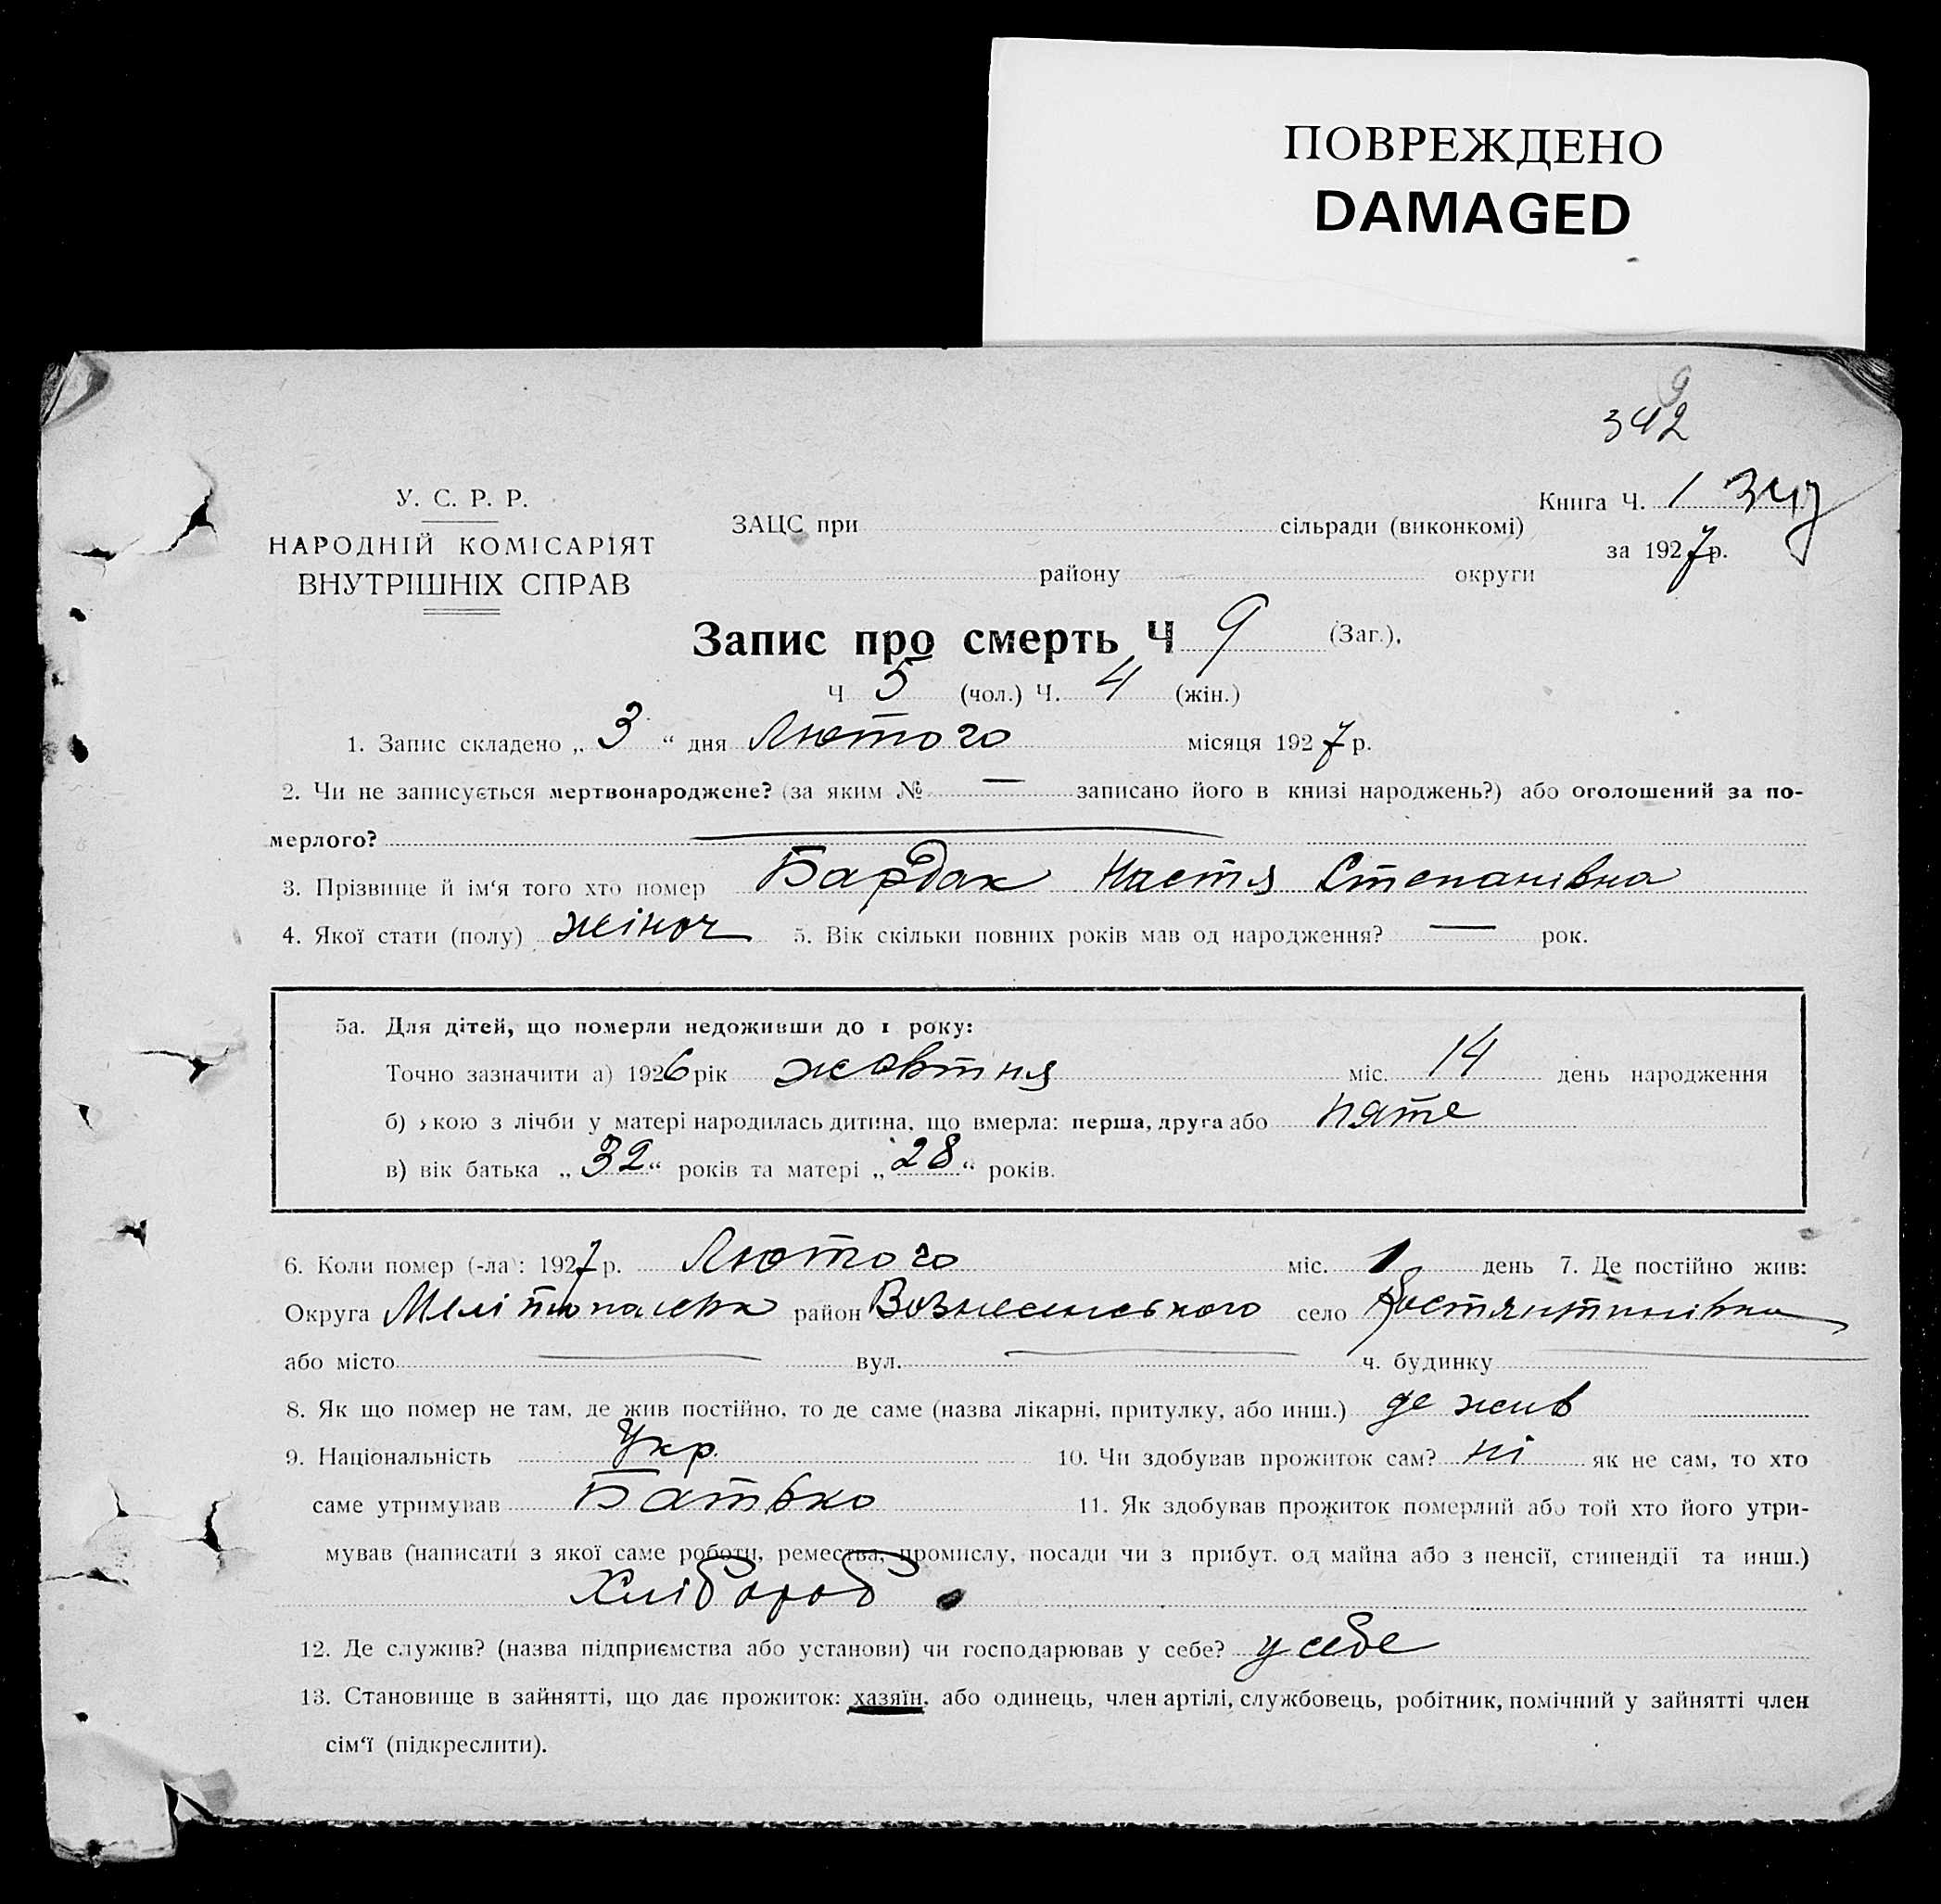 ПОВРЕЖДЕНО
DAMAGED
9
342
У. С. Р. Р.
НАРОДНІЙ КОМІСАРІЯТ
ВНУТРІШНІХ СПРАВ
ЗАЦС при сільради (виконкомі)
району округи
Книга Ч. 1
за 1927 р.
Запис про смерть Ч 9 (Заг.).
Ч 5 (чол.) Ч. 4 (жін.)
1. Запис складено „ 3 “ дня Лютого місяця 1927 р.
2. Чи не записується мертвонароджене? (за яким № — записано його в книзі народжень?) або оголошений за по-
мерлого? —
3. Прізвище й ім‘я того хто помер Бардак Настя Степанівна
4. Якої стати (полу) жіноч 5. Вік скільки повних років мав од народження? — рок.
5а. Для дітей, що померли недоживши до 1 року:
Точно зазначити а) 1926 рік жовтня міс. 14 день народження
б) кою з лічби у матері народилась дитина, що вмерла: перша, друга або пяте
в) вік батька „ 32 “ років та матері „ 28 “ років.
6. Коли помер (-ла): 1927 р. Лютого міс. 1 день 7. Де постійно жив:
Округа район Вознесенського село Костянтинівка
або місто — вул. — ч. будинку —
8. Як що помер не там, де жив постійно, то де саме (назва лікарні, притулку, або инш.) де жив
9. Національність Укр. 10. Чи здобував прожиток сам? ні як не сам, то хто
саме утримував Батько 11. Як здобував прожиток померлий або той хто його утри-
мував (написати з якої саме роботи, ремества, промислу, посади чи з прибут. од майна або з пенсії, стипендії та инш.)
Хлібороб
12. Де служив? (назва підприємства або установи) чи господарював у себе? у себе
13. Становище в зайнятті, що дає прожиток: хазяїн, або одинець, член артілі, службовець, робітник, помічний у зайнятті член
сім‘ї (підкреслити).